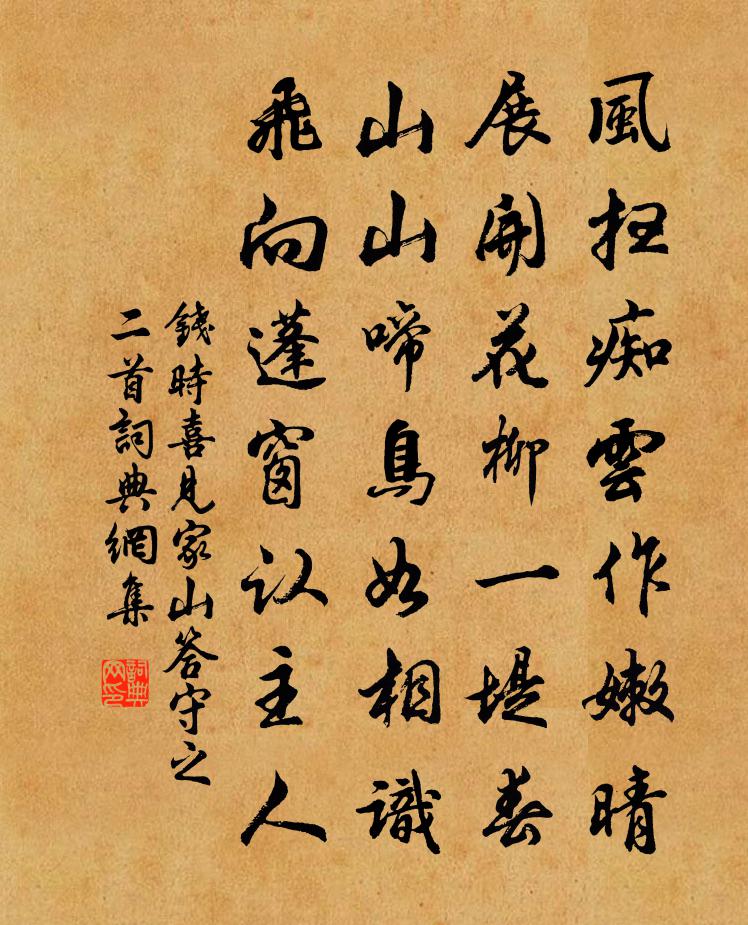 風掃痴雲作嫩晴
展開花柳一堤春
山山啼鳥如相識
飛向蓬窗認主人
錢時喜見家山答守之
二首詞典網集
詞典網印